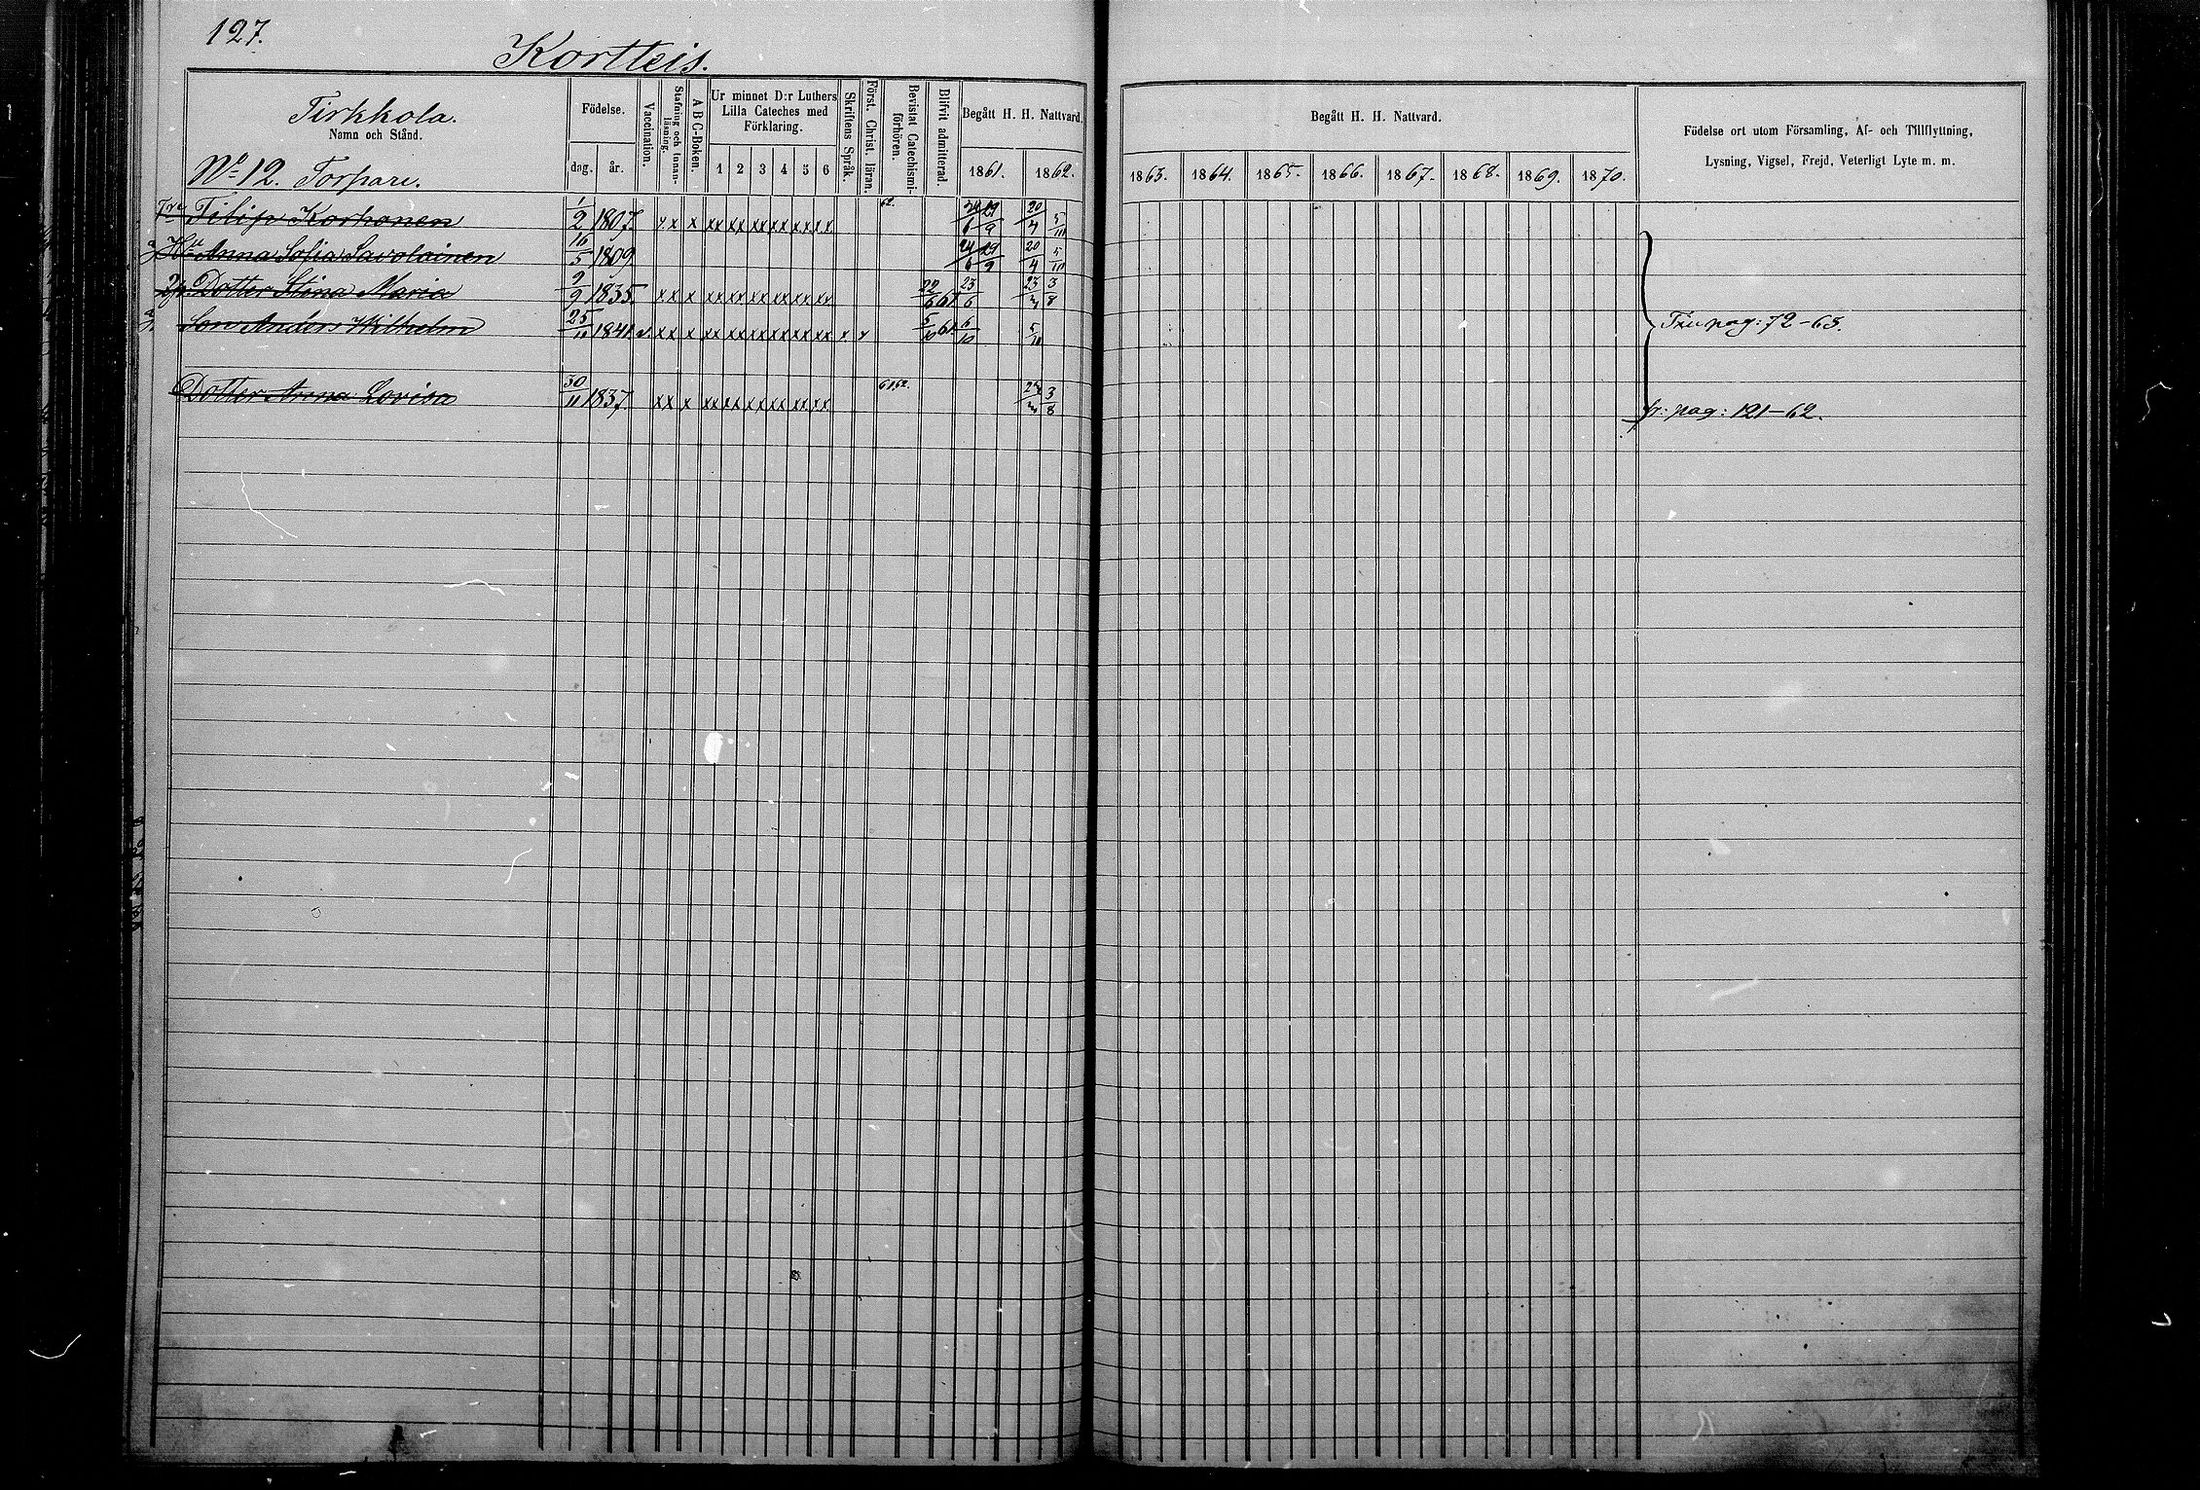 127.
Kortteis.
Tirkkola.
Namn och Stånd.
No 12. Torpare.
Födelse.
dag. år.
Vaccination.
Stafning och Innanläsning.
A B C-Boken.
Ur minnet D:r Luthers Lilla Cateches med Förklaring.
1 2 3 4 5 6
Skriftens Språk.
Först. Christ. läran.
Bevistat Catechismiförhören.
Blifvit admitterad.
Begått H. H. Nattvard.
1861. 1862.
Begått H. H. Nattvard.
1863. 1864. 1865. 1866. 1867. 1868. 1869. 1870.
Födelse ort utom Församling, Af- och Tillflyttning,
Lysning, Vigsel, Frejd, Veterligt Lyte m. m.
Filip Korhonen 1/2 1807. x x x xx xx xx xx xx xx 62. 24/6 29/9 20/4 5/10
Hu Anna Sofia Savolainen 16/5 1809. 24/6 29/9 20/4 5/10
Dotter Stina Maria 2/9 1835. x x x xx xx xx xx xx xx 23/6 3/8
Son Anders Wilhelm 25/11 1841. v. x x x xx xx xx xx xx xx x x 5/10 61 6/10
pag: 72-63.
Dotter Anna Lovisa 30/11 1837. x x x xx xx xx xx xx xx 61 62. 3/8
fr: pag: 121-62.